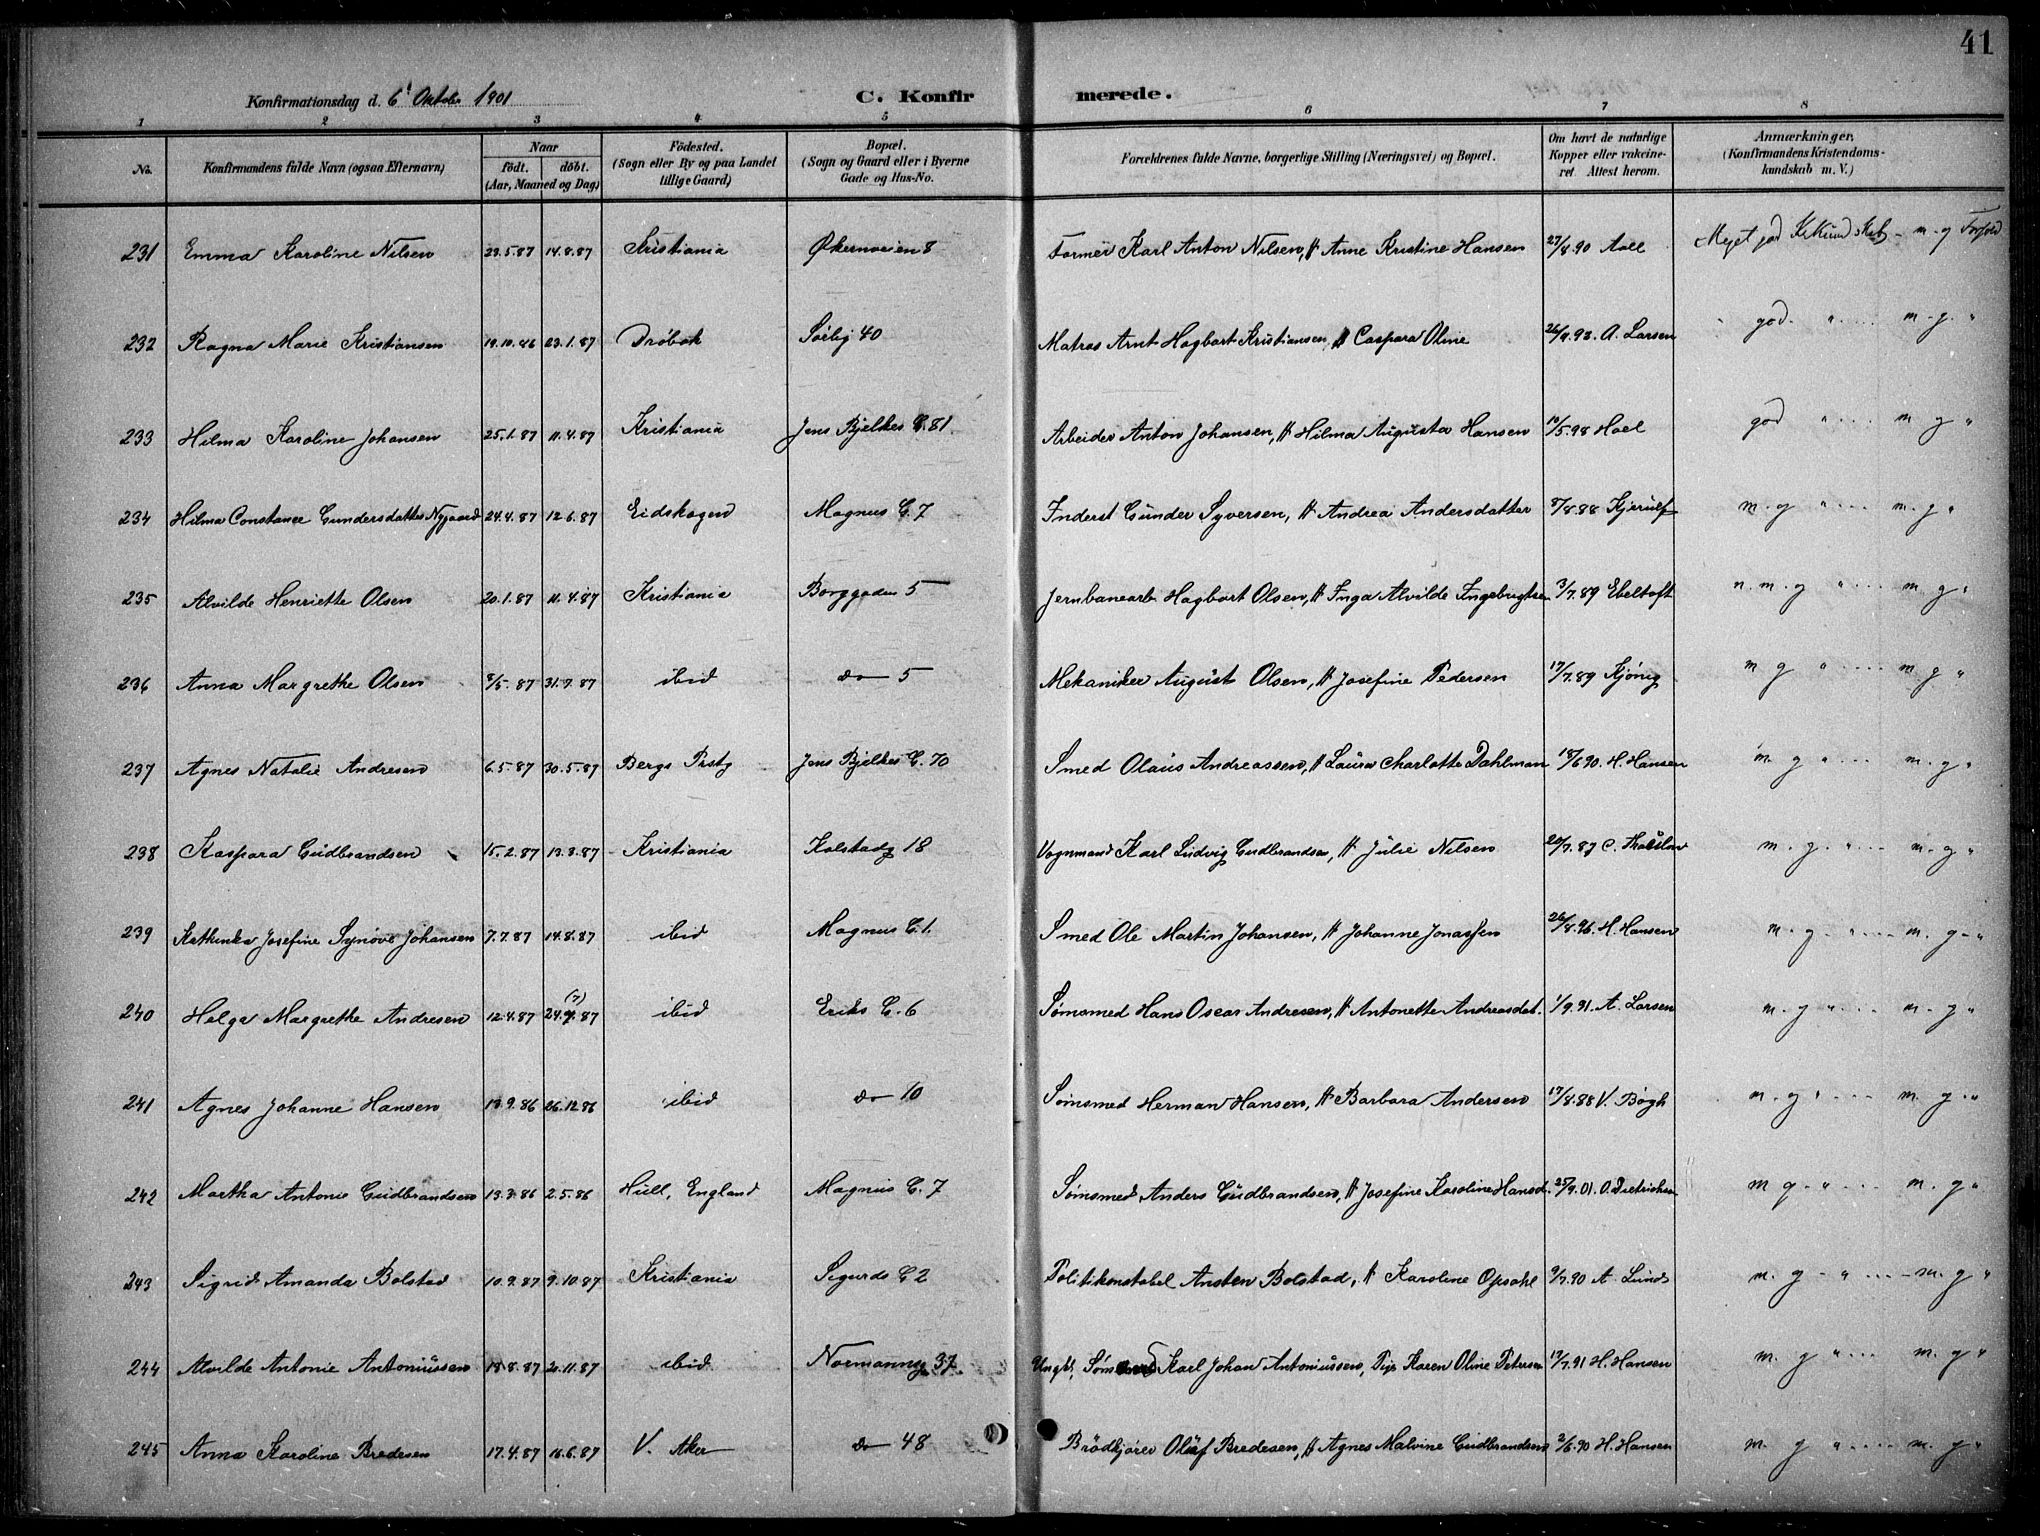 41
Konfirmationsdag d. 6' Oktober 1901 C. Konfirmerede.
1 2 3 4 5 6 7 8
No. Konfirmandens fulde Navn (ogsaa Efternavn) Naar født. døbt. (Aar, Maaned og Dag) Fødested. (Sogn eller By og paa Landet tillige Gaard) Bopæl. (Sogn og Gaard eller i Byerne Gade og Hus-No. Forældrenes fulde Navne, borgerlige Stilling (Næringsvei) og Bopæl. Om havt de naturlige Kopper eller vakcineret. Attest herom. Anmærkninger, (Konfirmandens Kristendomskundskab m. V.)
231 Emma Karoline Nilsen 23.5.87 14.8.87 Kristiania Økernveien 8 Former Karl Anton Nilsen, H Anne Kristine Hansen 27/8.90 Aall Meget god Kr.Kundskab - m. g Forhold
232 Ragna Marie Kristiansen 19.10.86 23.1.87 Drøbak Sørby 40 Matros Arnt Hagbart Kristiansen, H Caspara Oline 26/9.93. A. Larsen god " .... m. g. "
233 Hilma Karoline Johansen 25.1.87 11.4.87 Kristiania Jens Bjelkes G. 81. Arbeider Anton Johansen, H Hilma Augusta Hansen 10/5.98 Hoel god " .... m g "
234 Hilma Constance Gundersdatter Nygaard 24.4.87 12.6.87 Eidskogen Magnus G. 7 Inderst Gunder Syversen, H Andrea Andersdatter 8/8.88 Kjerulf m. g " .... m. g "
235 Alvilde Henriette Olsen 20.1.87 11.4.87 Kristiania Borggaden 5 Jernbanearb. Hagbart Olsen, H Inga Alvilde Ingebrigtsen 3/7.89 Ebeltoft n. m. g " .... m g "
236 Anna Margrethe Olsen 8/5.87 31.7.87 ibid do 5 Mekaniker August Olsen, H Josefine Pedersen 17/7.89 Kjønig m g " .... m g "
237 Agnes Natalie Andresen 6.5.87 30.5.87 Bergs Prstg Jens Bjelkes G. 70 Smed Olaus Andreassen, H Laura Charlotte Dahlman 18/6 90. H. Hansen m. g " .... m. g "
238 Kaspara Gudbrandsen 15.2.87 13.3.87 Kristiania Kolstadg 18 Vognmand Karl Ludvig Gudbrandsen, H Julie Nilsen 20/7.87 C. m. g. " .... m. g "
239 Kathinka Josefine Synøve Johansen 7.7.87 14.8.87 ibid Magnus G. 1 Smed Ole Martin Johansen, H Johanne Jonassen 26/8.96. H. Hansen m. g. " .... m. g "
240 Helga Margrethe Andresen 12.4.87 24.7.87 (7) ibid Eriks G. 6 Sømsmed Hans Oscar Andresen, H Antonette Andreasdat. 1/9.91. A. Larsen m. g " .... m. g "
241 Agnes Johanne Hansen 13.9.86 26.12.86 ibid do 10 Sømsmed Herman Hansen, H Barbara Andersen 17/8.88 V. Bøgh m. g " .... m. g. "
242 Martha Antonie Gudbrandsen 13.3.86 2.5.86 Hull, England Magnus G. 7 Sømsmed Anders Gudbrandsen, H Josefine Karoline Hansd. 25/9.01. O. Dietrichsen m g. " .... m. g "
243 Sigrid Amanda Bolstad 10.9.87 9.10.87 Kristiania Sigurds G 2 Politikonstabel Ansten Bolstad, H Karoline Opsahl 9/7.90 A. Lund m. g " .... m. g "
244 Alvilde Antonie Antoniussen 18.8.87 20.11.87 ibid Normanng 37 Ungk. Sømsmed Karl Johan Antoniussen, Pige Karen Oline Petersen 13/7.91 H. Hansen m. g " .... m. g "
245 Anna Karoline Bredesen 17.4.87 16.6.87 V. Aker do 48 Brødkjører Oluf Bredesen, H Agnes Malvine Gudbrandsen 2/6.90 H. Hansen m. g " .... m. g "